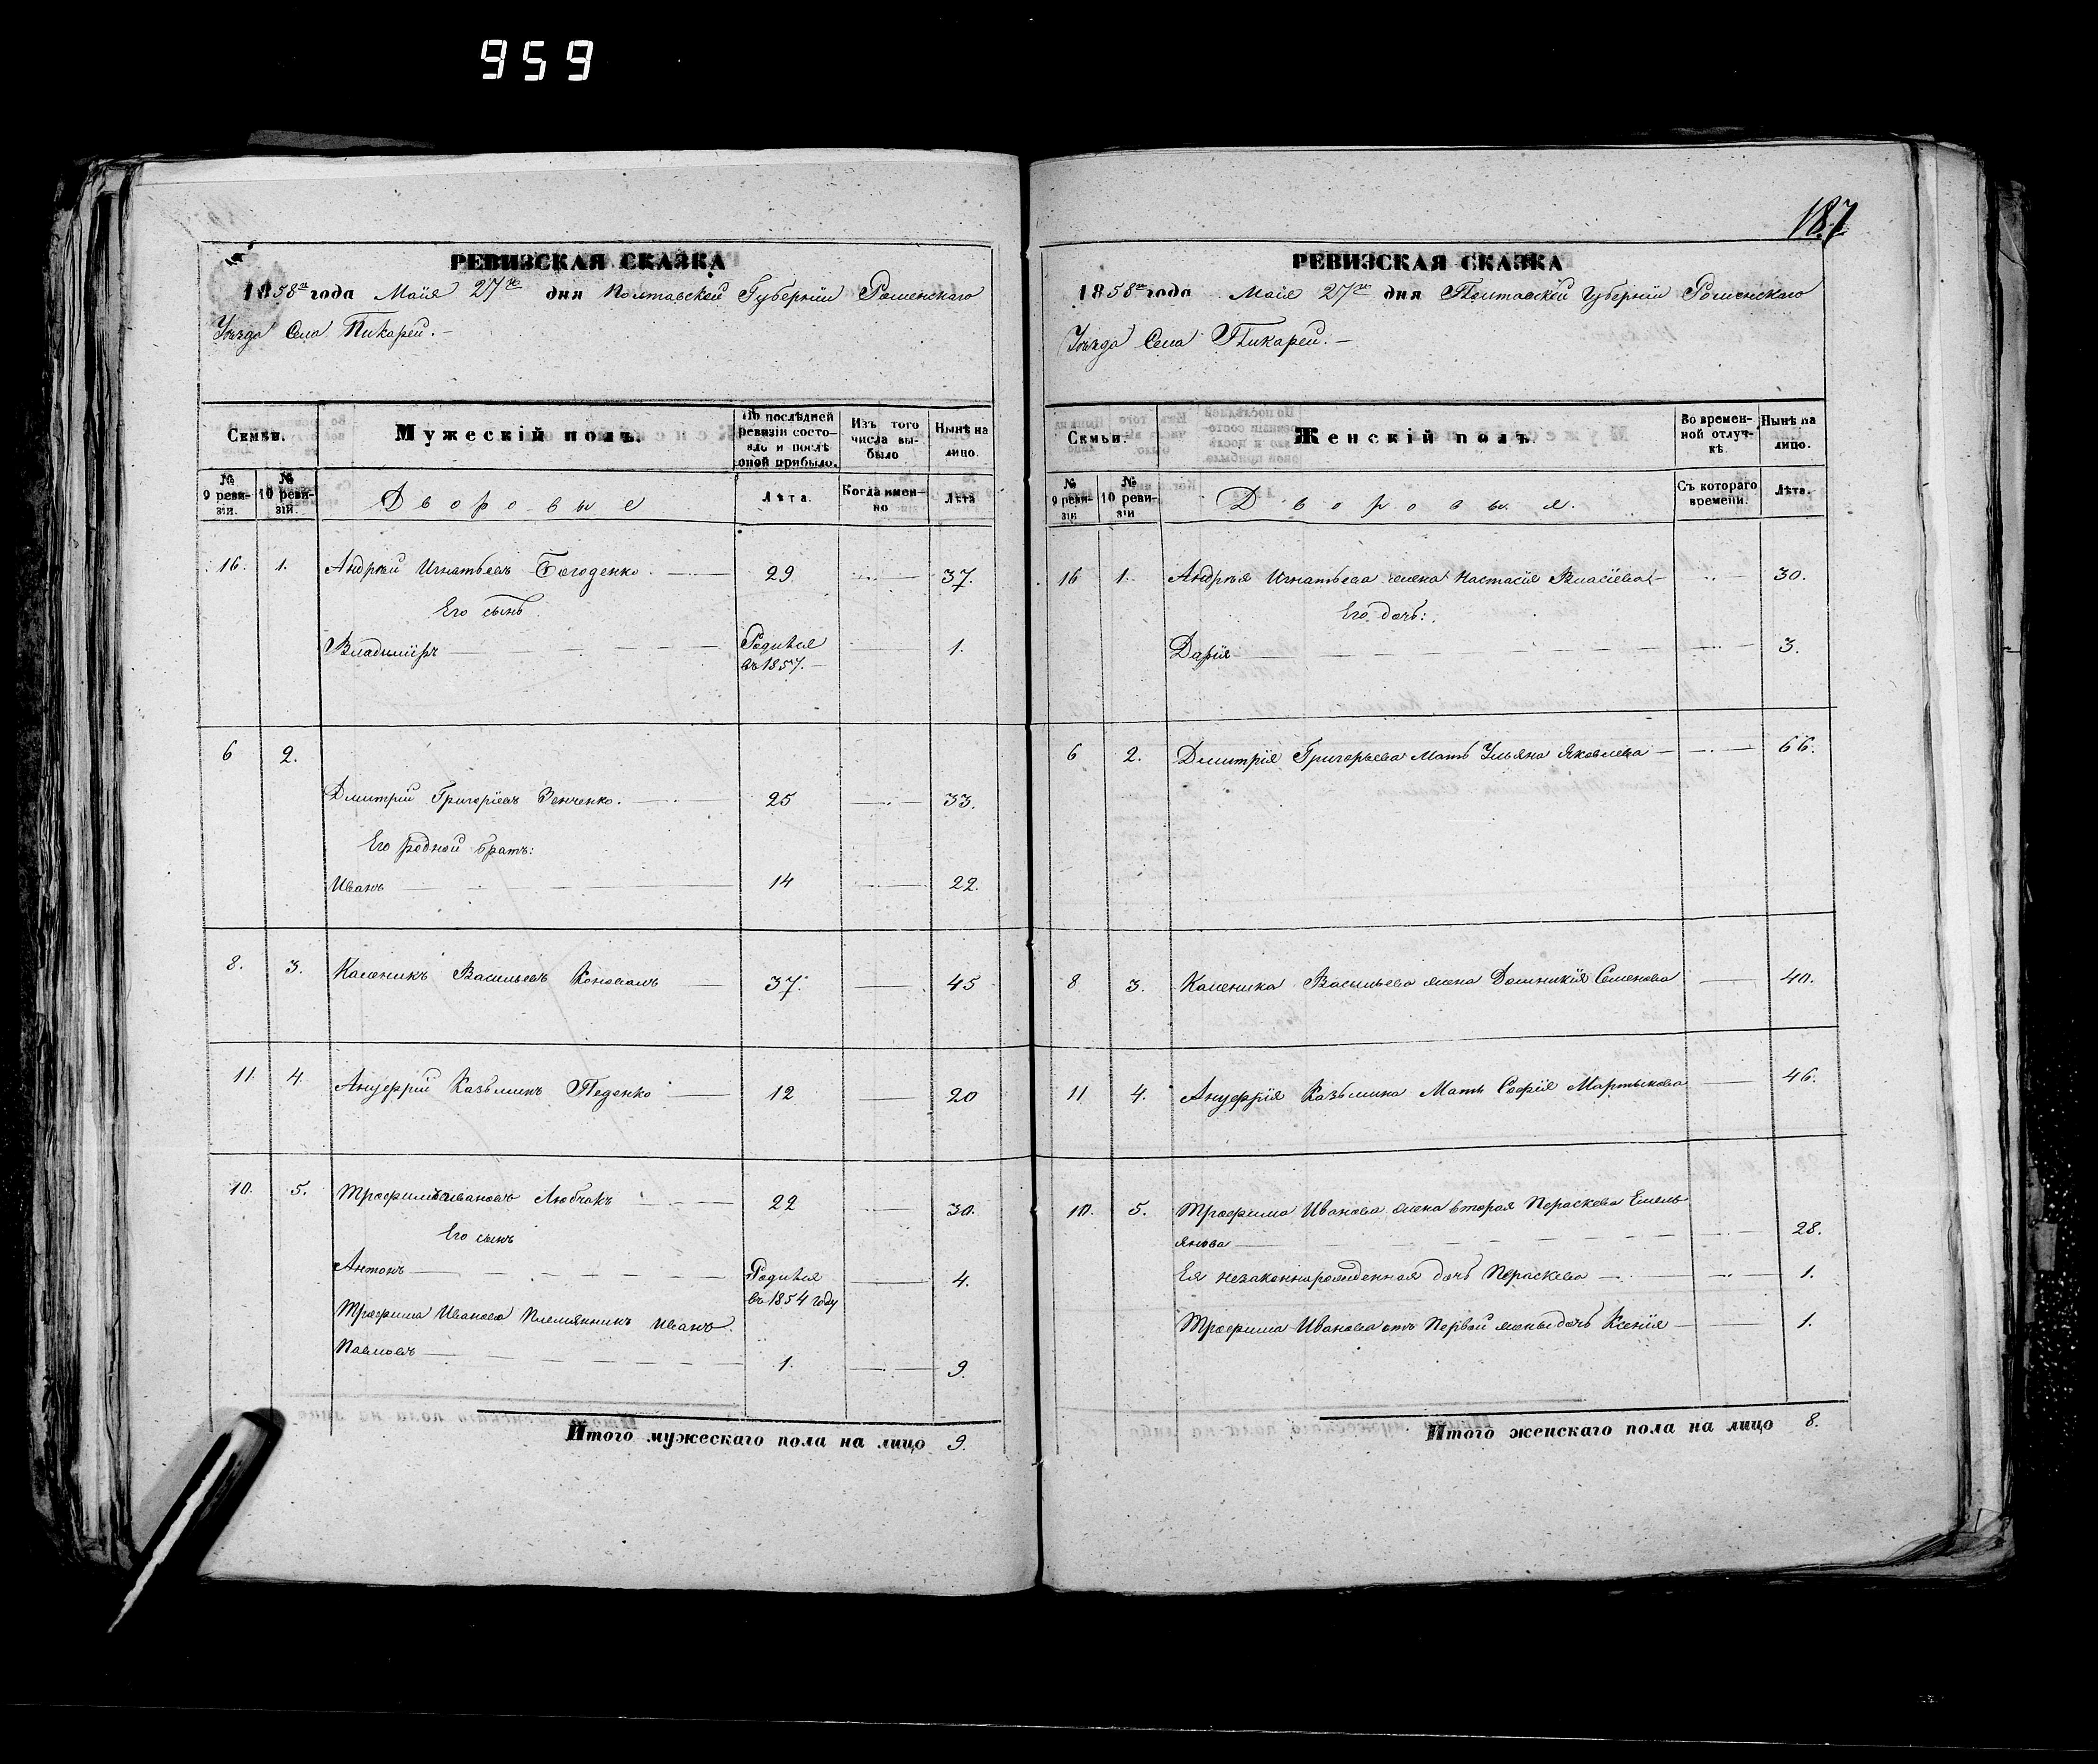 959
187
РЕВИЗСКАЯ СКАЗКА
1858го года Маія 27го дня Полтавской Губерніи Роменскаго
Уѣзда Села Пикарей.
Семьи.
Мужескій полъ.
По послѣдней ревизіи состояло и послѣ оной прибыло.
Изъ того числа выбыло
Нынѣ на лицо.
№ 9 ревизіи.
№ 10 ревизіи.
Дворовые
Лѣта.
Когда именно
Лѣта
16. 1. Андрей Игнатьевъ 29 37.
Его сынъ
Владиміръ Родился въ 1857. 1.
6 2.
Дмитрій Григоріевъ Зенченко. 25 33.
Его родной братъ:
Иванъ 14 22.
8. 3. Каленикъ Васильевъ Коновалъ 37. 45
11. 4. Ануфрій Казьминъ Педенко 12 20
10. 5. Трофимъ Ивановъ Любчакъ 22 30.
Его сынъ
Антонъ Родился въ 1854 году 4.
Трофима Иванова Племянникъ Иванъ
Павловъ 1. 9.
Итого мужескаго пола на лицо 9.
РЕВИЗСКАЯ СКАЗКА
1858го года Маія 27го дня Полтавской Губерніи Роменскаго
Уѣзда Села Пикарей.
Семьи.
Женскій полъ.
Во временной отлучкѣ.
Нынѣ на лицо.
№ 9 ревизіи
№ 10 ревизіи
Дворовыя.
Съ котораго времени.
Лѣта.
16 1. Андрея Игнатьева жена Настасія Власіева 30.
Его дочь:
Дарія 3.
6 2. Дмитрія Григорьева Мать Ульяна Яковлева 66.
8 3. Каленика Васильева жена Домникія Семенова 40.
11 4. Ануфрія Казьмина Мать Софія Мартынова 46.
10. 5. Трофима Иванова жена вторая Параскева Емель
янова 28.
Ея незаконнорожденная дочь Параскева 1.
Трофима Иванова отъ Первой жены дочь Ксенія 1.
Итого женскаго пола на лицо 8.